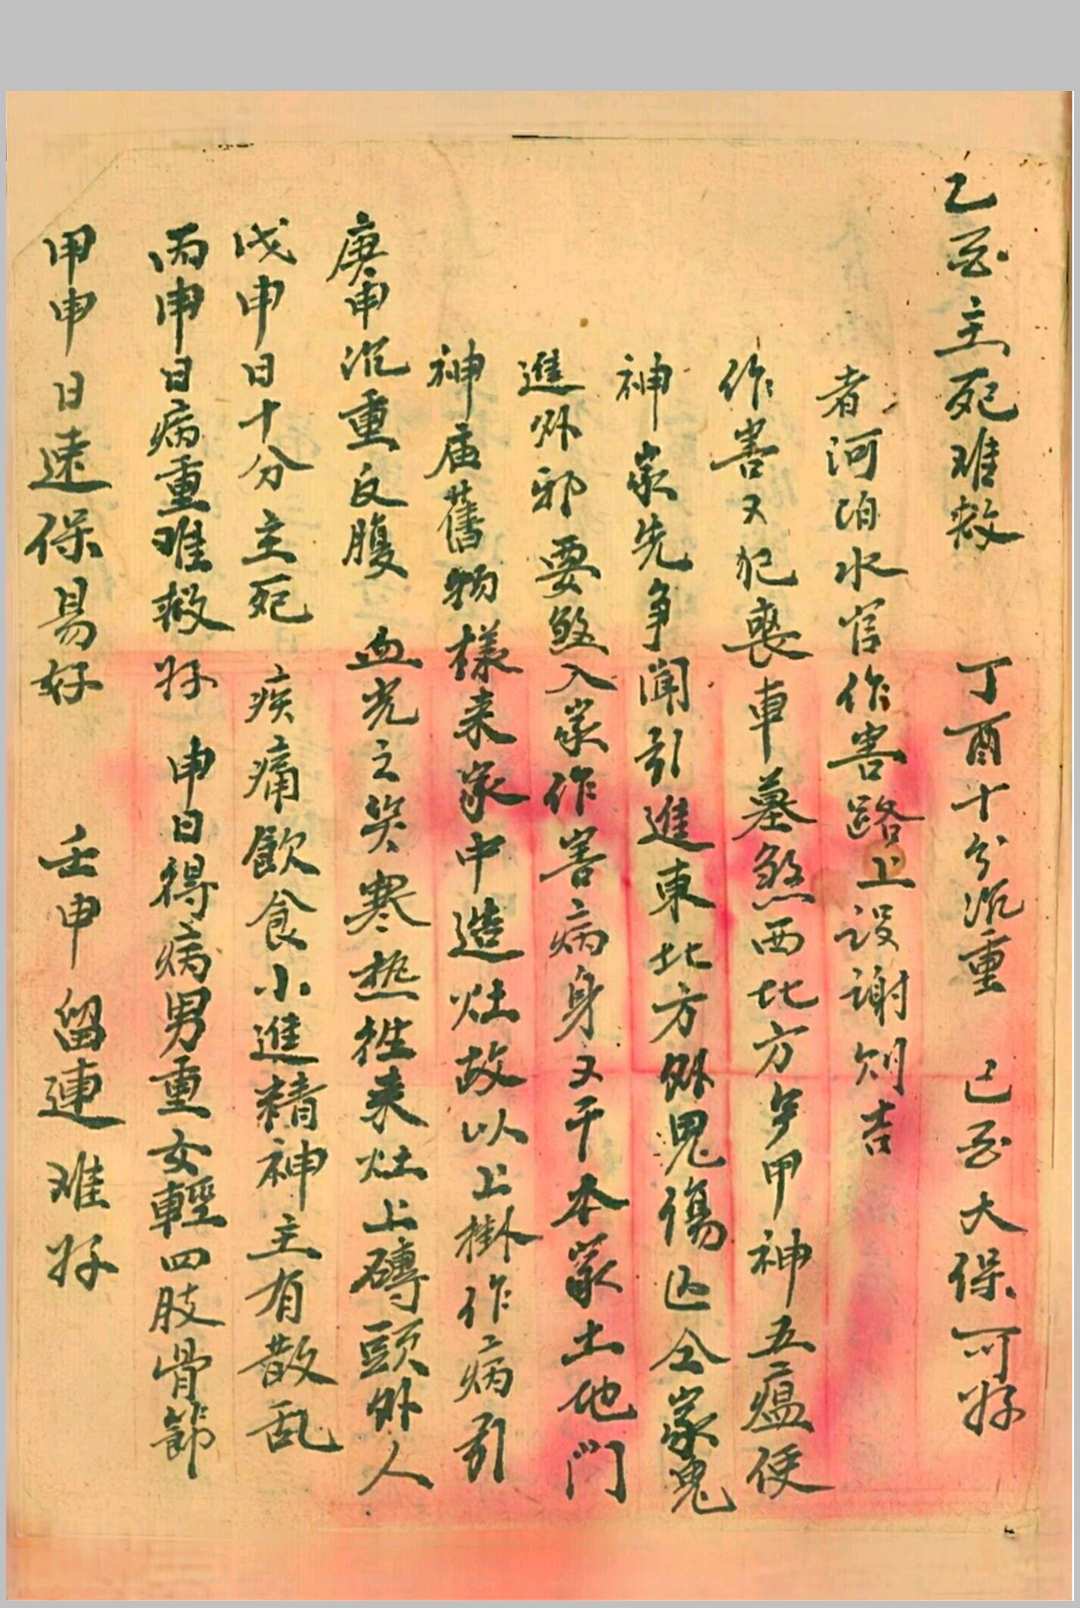 甲申日速保易好　壬申留連难好
丙申日病重难救好　申日得病男重女輕四肢骨節
戊申日十分主死　疾痛飲食小進精神主有散乱
庚申沉重反腹　血光之災寒热往来灶上磚頭外人
神庙舊物樣来家中造灶故以上掛作病引
進外邪要煞入家作害病身又干本家土地門
神家先争闹引進東北方外鬼傷亡仝家鬼
作害又犯喪車墓煞西北方年甲神五瘟使
者河泊水官作害路上设谢则吉
乙酉主死难救　丁酉十分沉重　己酉大保可好